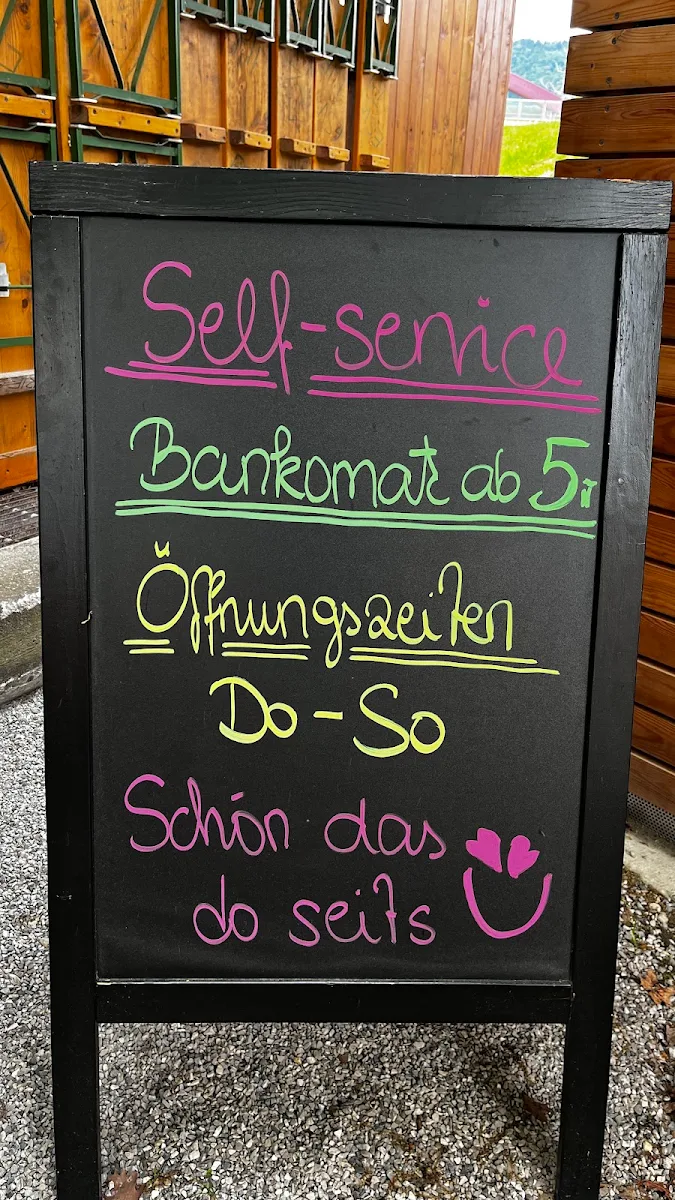 Self-service
Bankomat ab 5,-
Öffnungszeiten
Do - So
Schön das
do seits